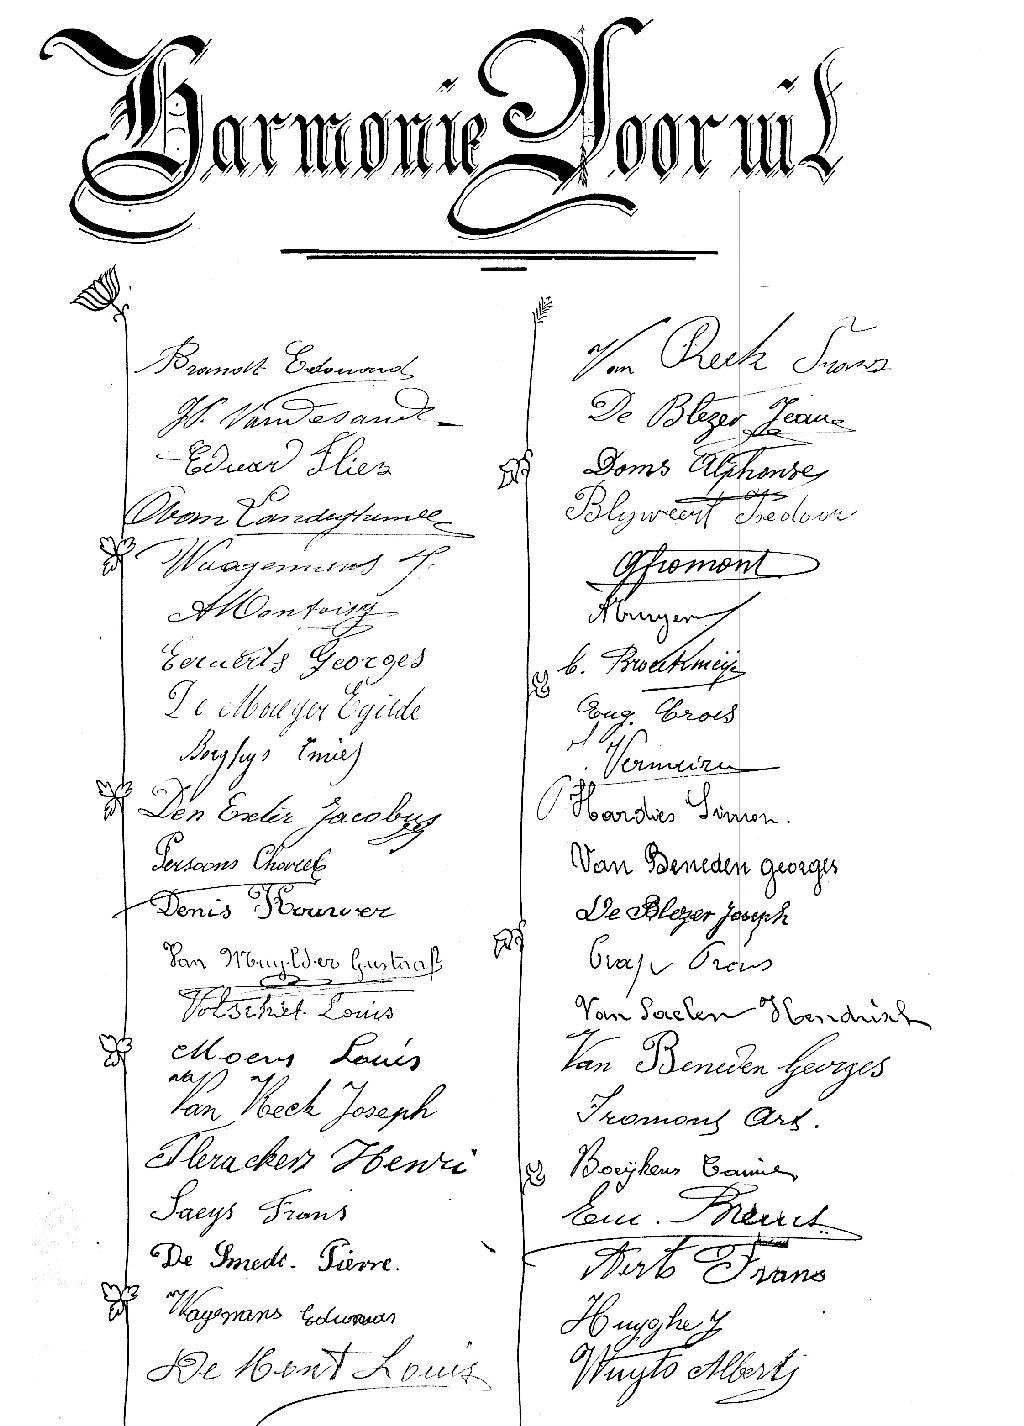 Harmonie Vooruit
Brandt Edouard
Vandesande
Eduard Slier
Waagemans J.
A Montoisy
Geraerts Georges
De Maeyer Egide
Borghys Emiel
Den Exter Jacobus
Persoons Charel
Denis Rouwer
Van Muylder Gustaaf
Volschiet Louis
Moens Louis
Van Keck Joseph
Plerackers Henri
Saeys Frans
De Smedt. Pierre.
Wagemans Edmond
De Hont Louis
Van Reck Frans
De Blezer Jean
Doms Alphonse
Blyweert Isedoor
G Fromont
C. Broekmeije
Eug. Crois
Vermeire
Hardies Simon.
Van Beneden georges
De Blezer Joseph
Frans
Van Saelen Hendrik
Van Beneden Georges
Fromont Art.
Boeykens Camiel
Em.
Aerts Frans
Huyghe J
Wuyts Albert